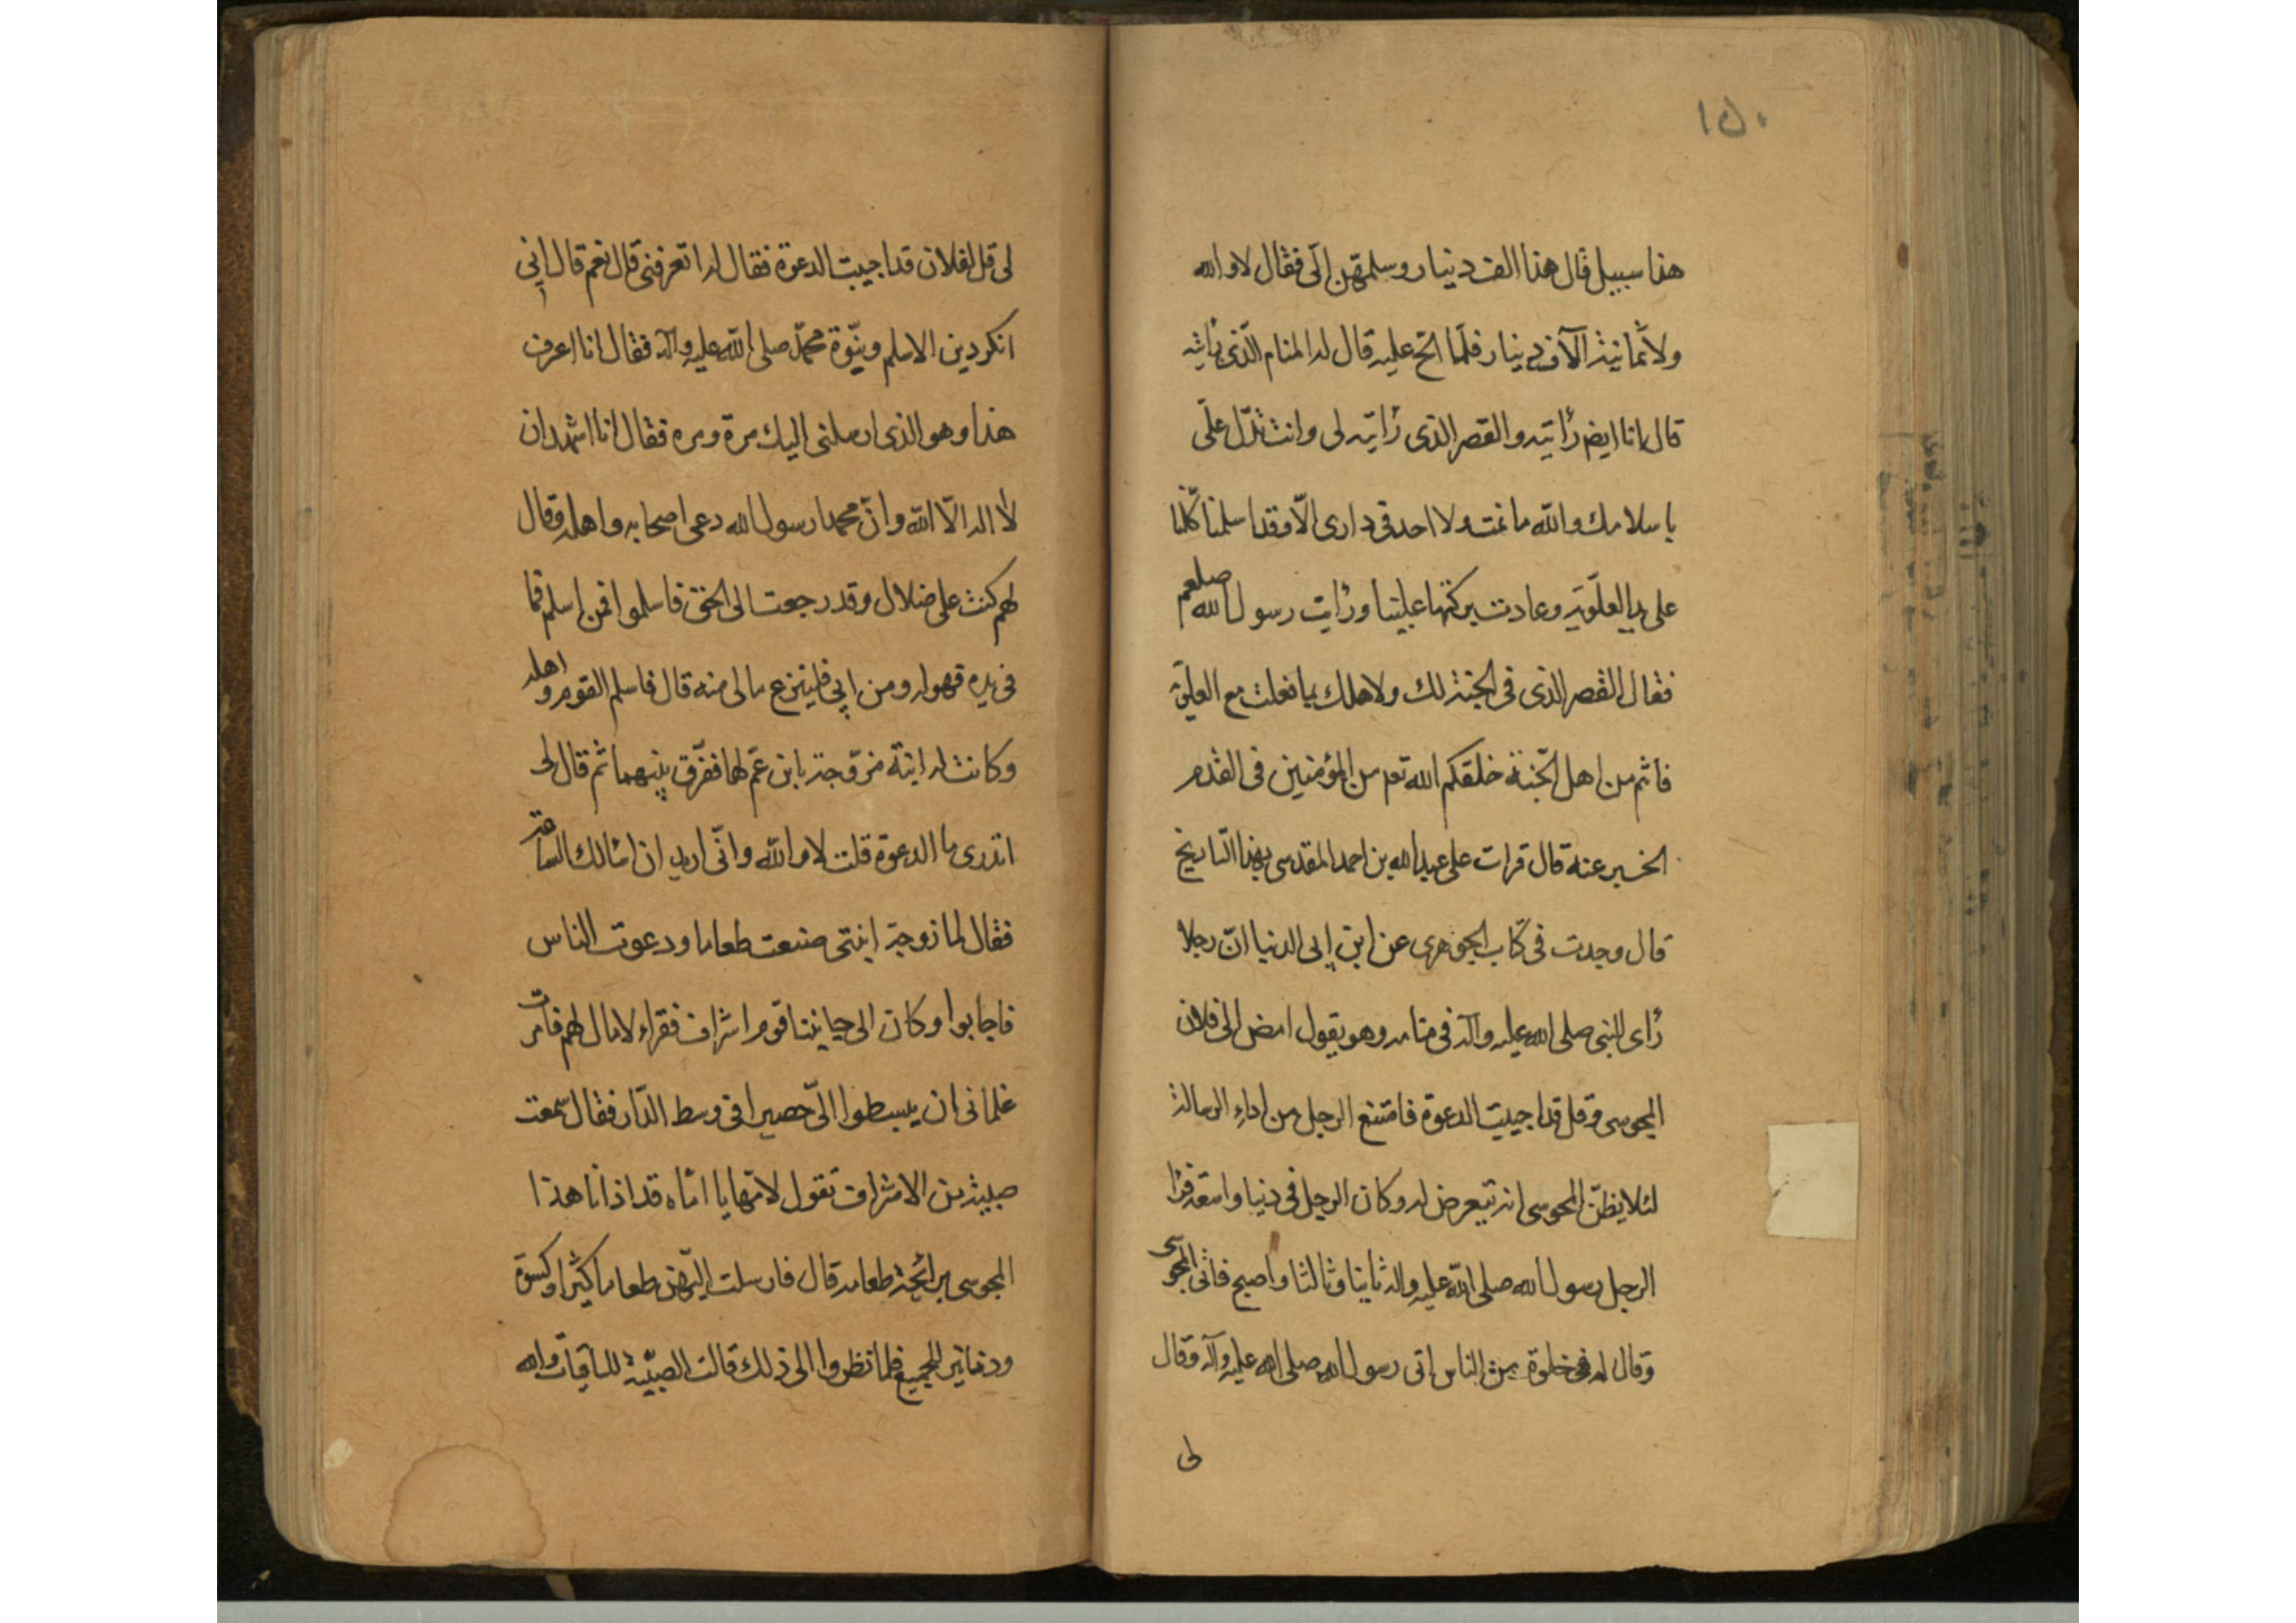 ١٥٠
هذا سبيل قال هذا الف دينار وسلمهن الى فقال لا والله
ولا ثمانية آلاف دينار فلما الح عليه قال له المنام الذى رأيته
قال انا ايض رأيته والقصر الذى رأيته لى وانت تدل على
باسلامك والله ما نمت ولا احد فى دارى الا وقد اسلمنا كلنا
على يد العلوية وعادت بركتها علينا ورأيت رسول الله صلعم
فقال القصر الذى فى الجنة لك ولاهلك بما فعلت مع العلوية
فانتم من اهل الجنة خلقكم الله تعه من المؤمنين فى القدم
الخبر عنه قال قرات على عبد الله بن احمد المقدسى بهذا التاريخ
قال وجدت فى كتاب الجوهرى عن ابن ابى الدنيا ان رجلا
رأى النبى صلى الله عليه وآله فى منامه وهو يقول امض الى فلان
المجوسى وقل قد اجيبت الدعوة فامتنع الرجل من اداء الرسالة
لئلا يظن المجوسى انه يتعرض له وكان الرجل فى دنيا واسعة فرأ
الرجل رسول الله صلى الله عليه واله ثانيا وثالثا واصبح فاتى المجوسى
وقال له فى خلوة من الناس انى رسول الله صلى الله عليه وآله وقال
لى
لى قل لفلان قد اجيبت الدعوة فقال له اتعرفنى قال نعم قال انى
انكر دين الاسلم ونبوة محمد صلى الله عليه وآله فقال انا اعرف
هذا وهو الذى ارسلنى اليك مرة ومره فقال انا اشهد ان
لا اله الا الله وان محمدا رسول الله دعى اصحابه واهله وقال
لهم كنت على ضلال وقد رجعت الى الحق فاسلموا فمن اسلم فما
فى يده فهو له ومن ابى فلينزع مالى منه قال فاسلم القوم واهله
وكانت له ابنة مزوجة بابن عم لها ففرق بينهما ثم قال لى
اتدرى ما الدعوة قلت لا والله وانى اريد ان اسالك الساعة
فقال لما زوجت ابنتى صنعت طعاما ودعوت الناس
فاجابوا وكان الى جانبنا قوم اشراف فقراء لا مال لهم فامرت
غلمانى ان يبسطوا الى حصيرا فى وسط الدار فقال سمعت
صبية من الاشراف تقول لامها يا اماه قد اذانا هذا
المجوسى برائحة طعامه قال فارسلت اليهن طعاما كثيرا وكسوة
ودنانير للجميع فلما نظروا الى ذلك قالت الصبية للباقيات والله